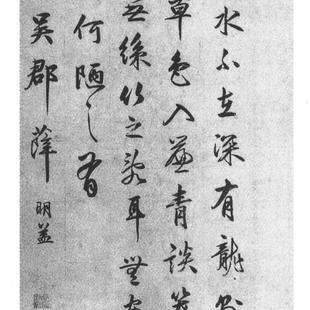 水不在深有龍則
草色入簾青談笑
無絲竹之亂耳無案
何陋之有
吳郡薛明益